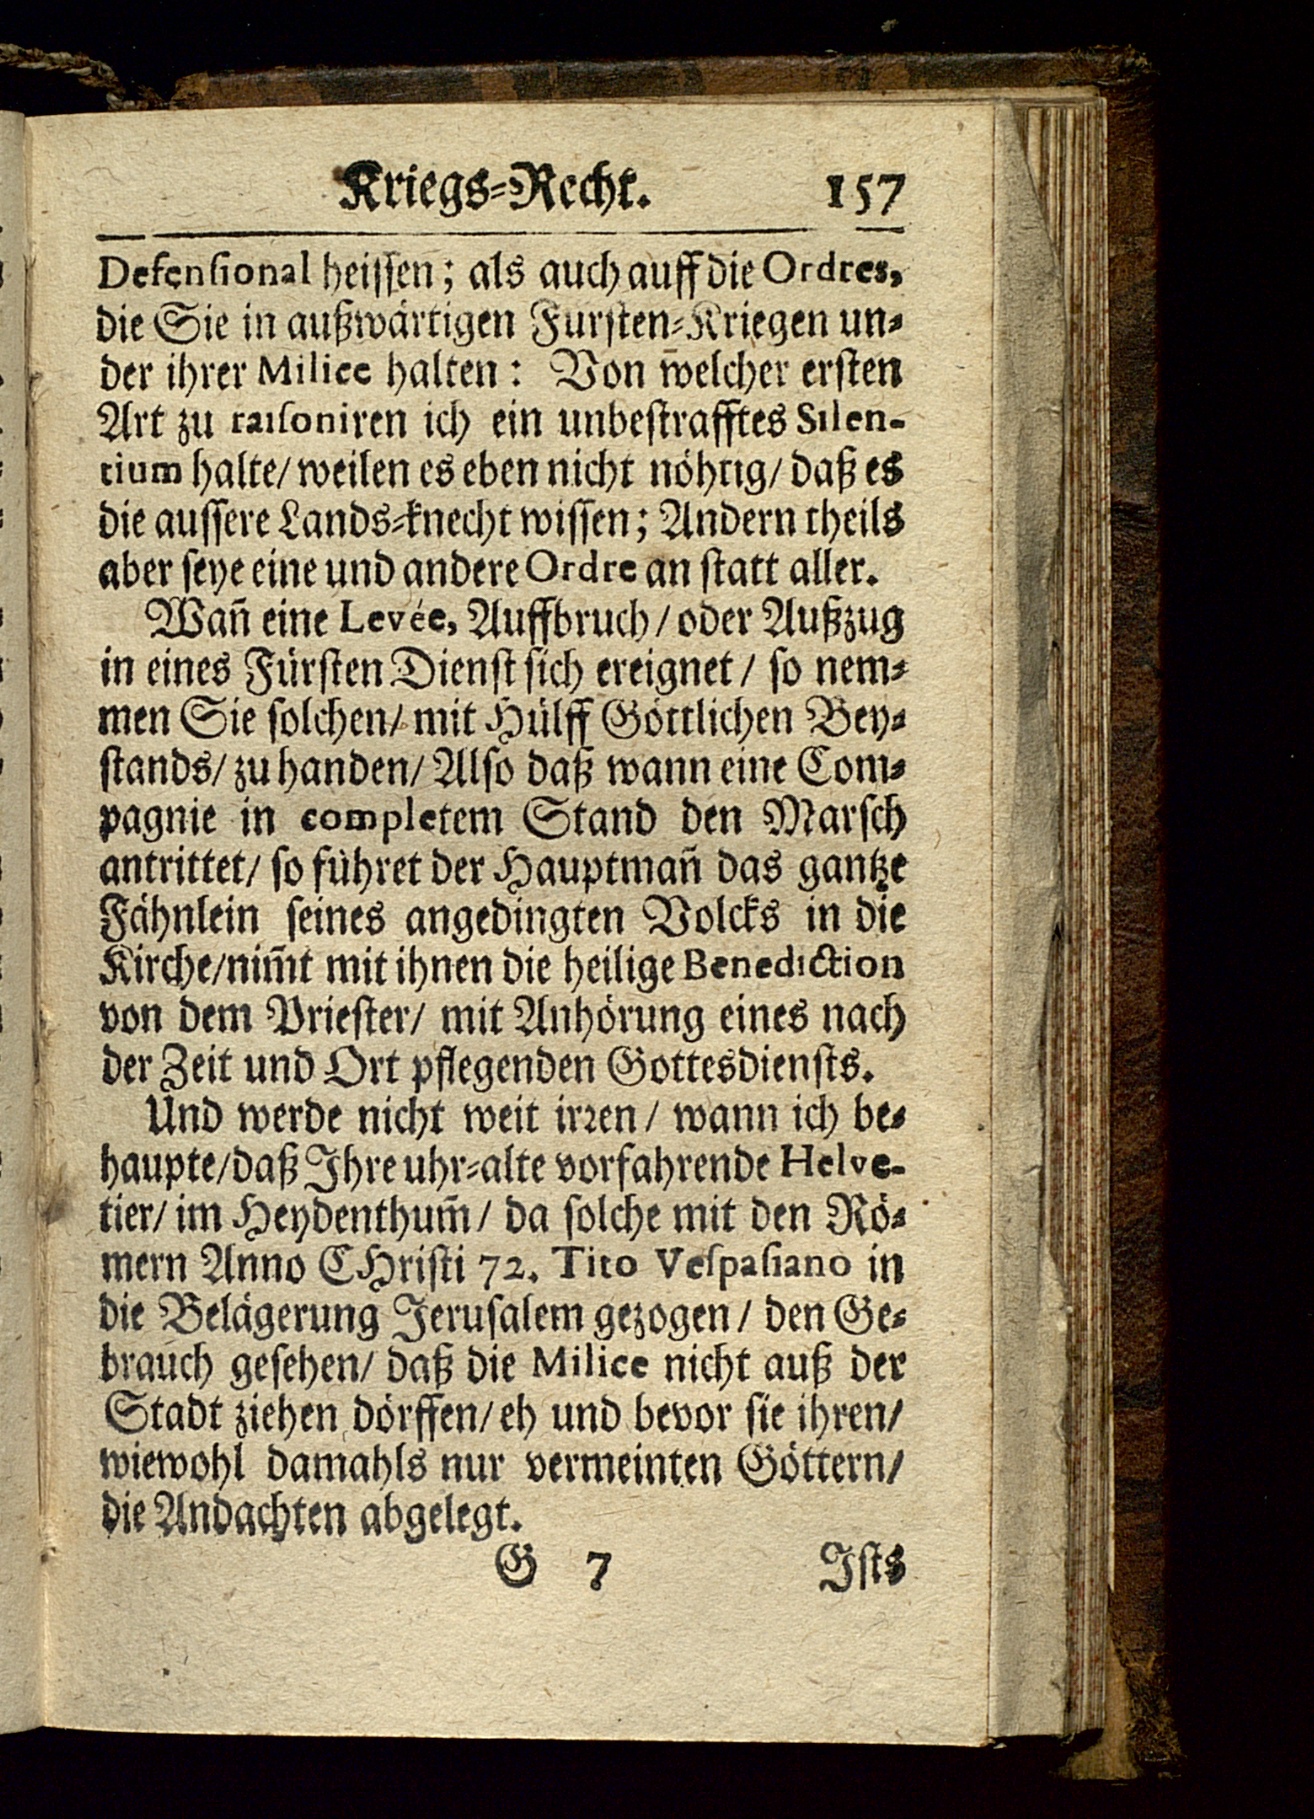 Kriegs-Recht. 157
Defensional heissen; als auch auff die Ordres,
die Sie in außwärtigen Fursten-Kriegen un-
der ihrer Milice halten: Von w̃elcher ersten
Art zu raisoniren ich ein unbestrafftes Silen-
tium halte/ weilen es eben nicht nöhtig/ daß es
die aussere Lands-knecht wissen; Andern theils
aber seye eine und andere Ordre an statt aller.
Wañ eine Levée, Auffbruch/ oder Außzug
in eines Fürsten Dienst sich ereignet/ so nem-
men Sie solchen/ mit Hülff Göttlichen Bey-
stands/ zu handen/ Also daß wann eine Com-
pagnie in completem Stand den Marsch
antrittet/ so führet der Hauptmañ das gantze
Fähnlein seines angedingten Volcks in die
Kirche/ nim̃t mit ihnen die heilige Benediction
von dem Priester/ mit Anhörung eines nach
der Zeit und Ort pflegenden Gottesdiensts.
Und werde nicht weit irꝛen/ wann ich be-
haupte/ daß Ihre uhr-alte vorfahrende Helve-
tier/ im Heydenthum̃/ da solche mit den Rö-
mern Anno CHristi 72. Tito Vespasiano in
die Belägerung Jerusalem gezogen/ den Ge-
brauch gesehen/ daß die Milice nicht auß der
Stadt ziehen dörffen/ eh und bevor sie ihren/
wiewohl damahls nur vermeinten Göttern/
die Andachten abgelegt.
G 7 Ists